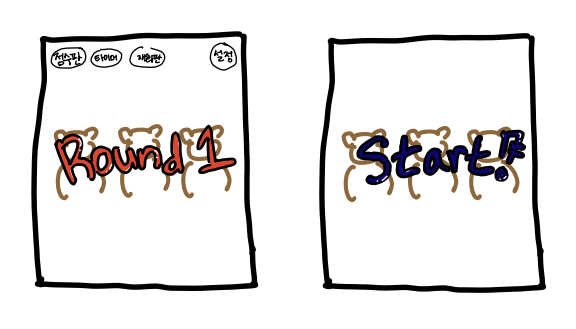 점수판 타이머 재화판 설정
Round 1
Start!